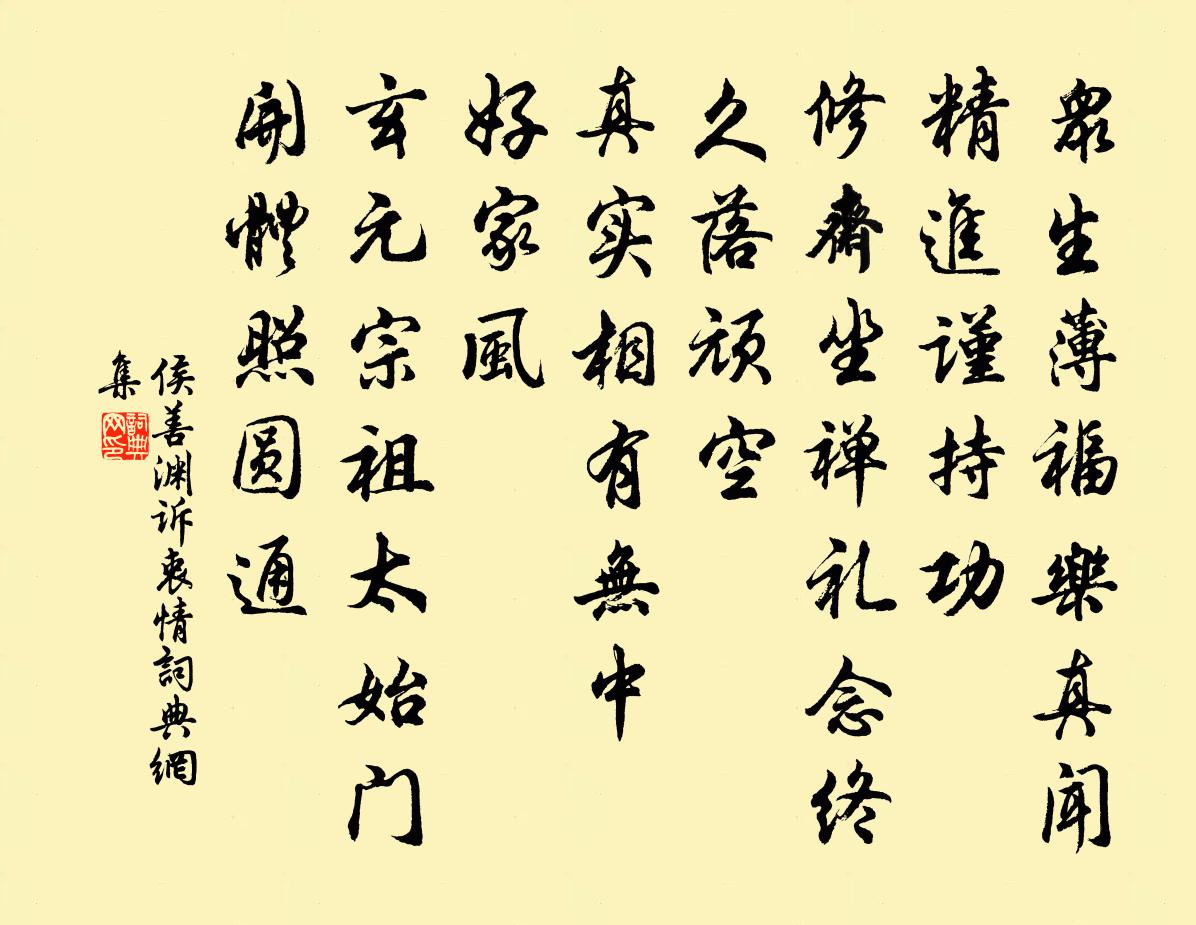 衆生薄福樂真聞
精進谨持功
修齋坐禅礼念终
久落頑空
真实相有無中
好家風
玄元宗祖太始门
開體照圆通
侯善渊诉衷情詞典網
集
詞典
网印